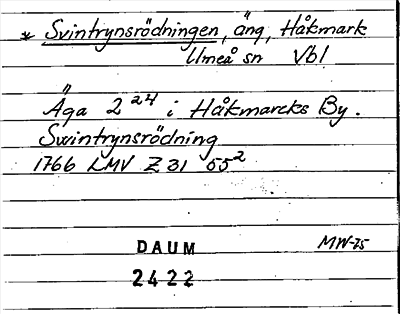 * Svintrynsrödningen, äng, Håkmark
Umeå sn Vbl.
Äga 2 24 i Håkmarcks By.
Swintrynsrödning
1766 LMV Z 31 55²
DAUM MW-75
2422